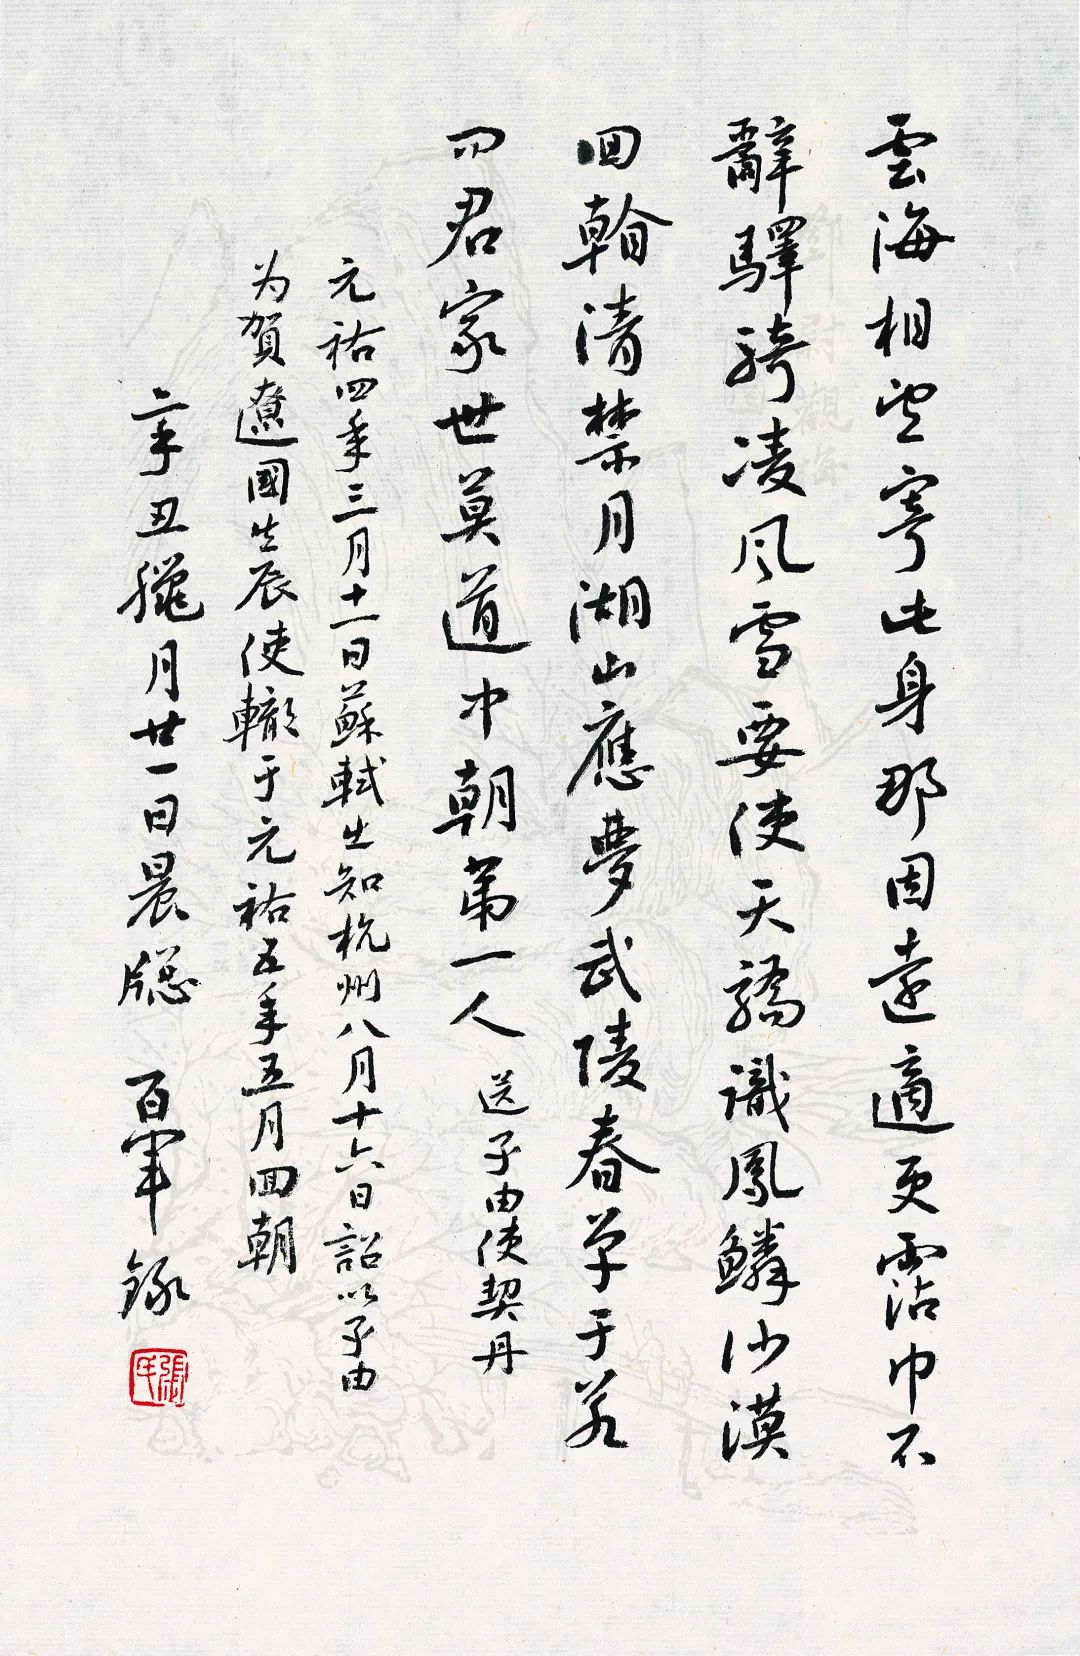 雲海相望寄此身那因遠適更霑巾不
辭驛騎凌风雪要使天驕識鳳鱗沙漠
回看清禁月湖山應夢武陵春單于若
问君家世莫道中朝第一人 送子由使契丹
元祐四年三月十一日蘇軾出知杭州八月十六日詔以子由
为賀遼國生辰使轍于元祐五年五月回朝
辛丑臘月廿一日晨牕 百軍錄
張氏